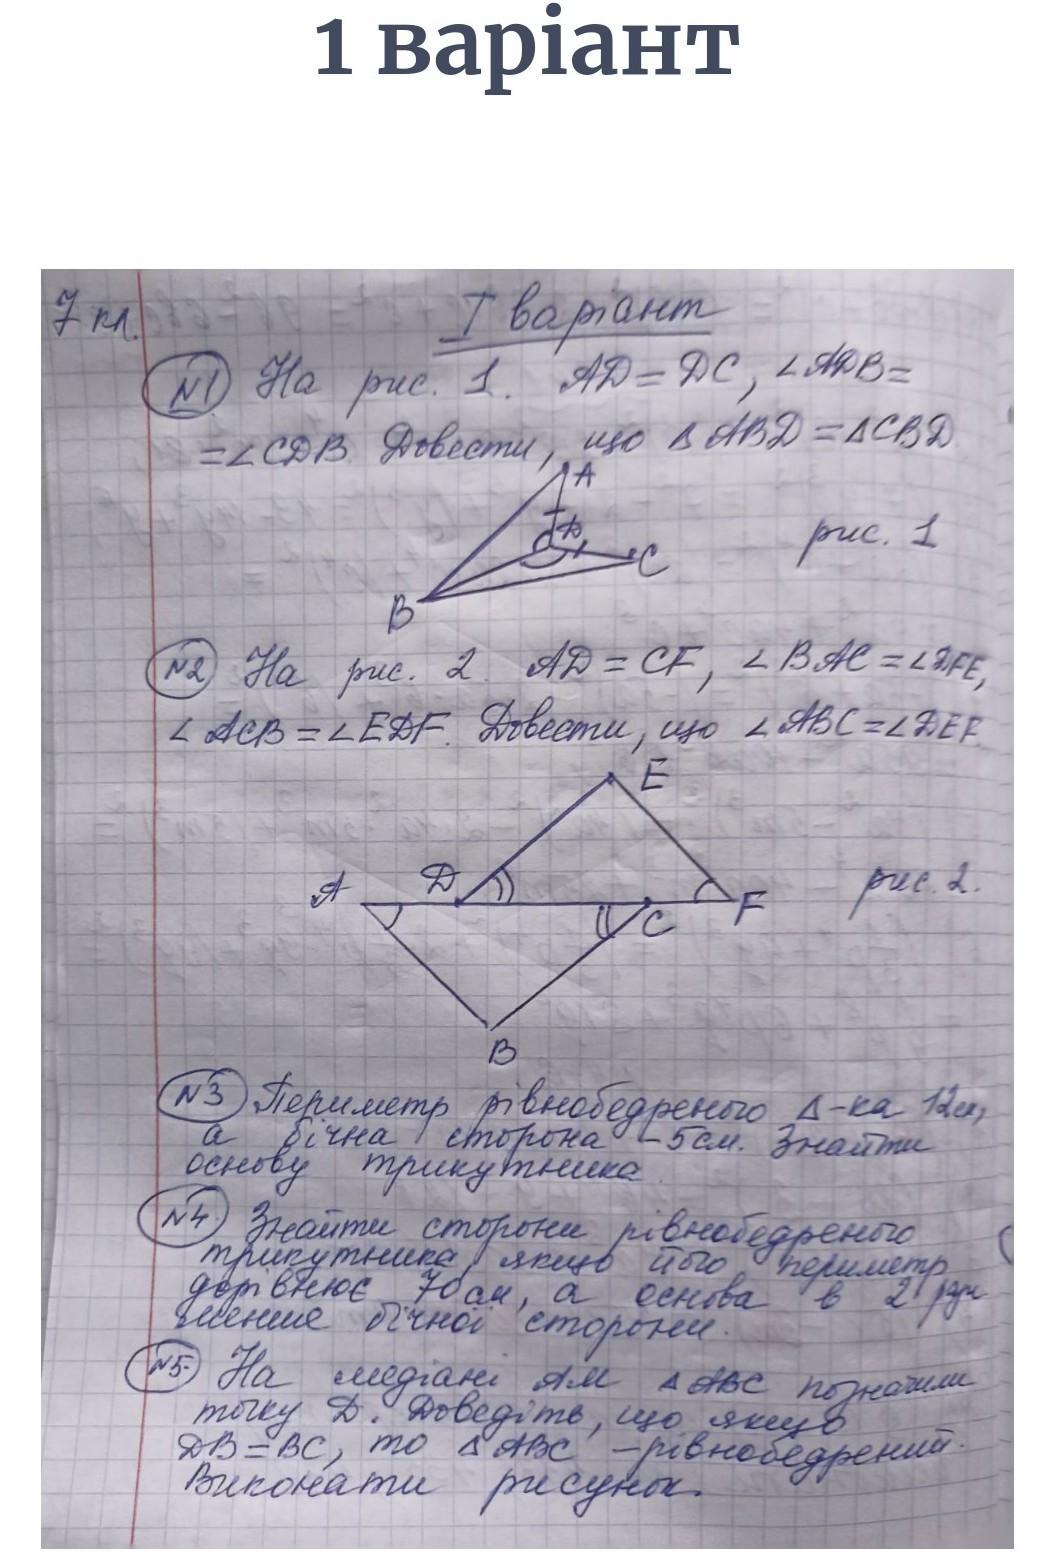 1 варіант
7 кл.
I варіант
№1 На рис. 1. AD = DC, ∠ADB =
= ∠CDB. Довести, що ΔABD = ΔCBD
A
D
C
B
рис. 1
№2 На рис. 2. AD = CF, ∠BAC = ∠DFE,
∠ACB = ∠EDF. Довести, що ∠ABC = ∠DEF.
E
A
D
C
F
B
рис. 2.
№3 Периметр рівнобедреного Δ-ка 12см,
а бічна сторона – 5см. Знайти
основу трикутника.
№4. Знайти сторони рівнобедреного
трикутника, якщо його периметр
дорівнює 70см, а основа в 2 рази
менше бічної сторони.
№5. На медіані AM ΔABC позначили
точку D. Доведіть, що якщо
DB = BC, то ΔABC – рівнобедрений.
Виконати рисунок.